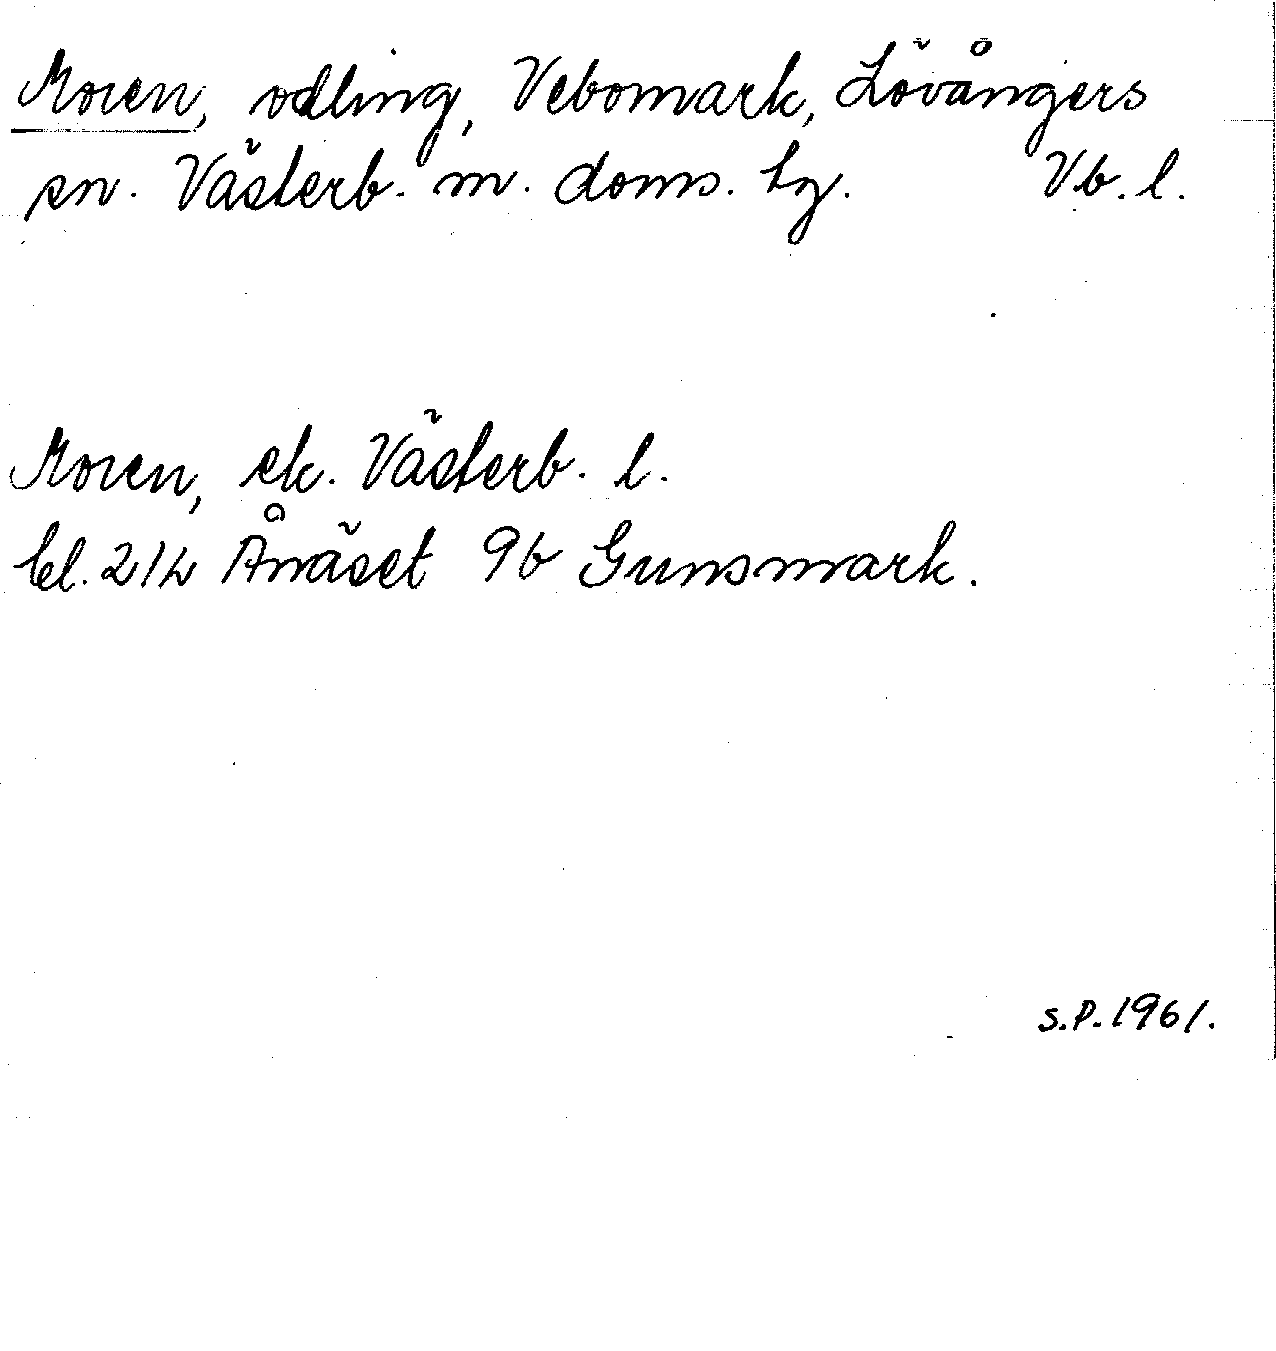 Moren, odling, Vebomark, Lövångers
sn. Västerb. m. doms. tg. Vb. l.
Moren, ek. Västerb. l.
bl. 21h Ånäset 9b Gunsmark.
S.P. 1961.